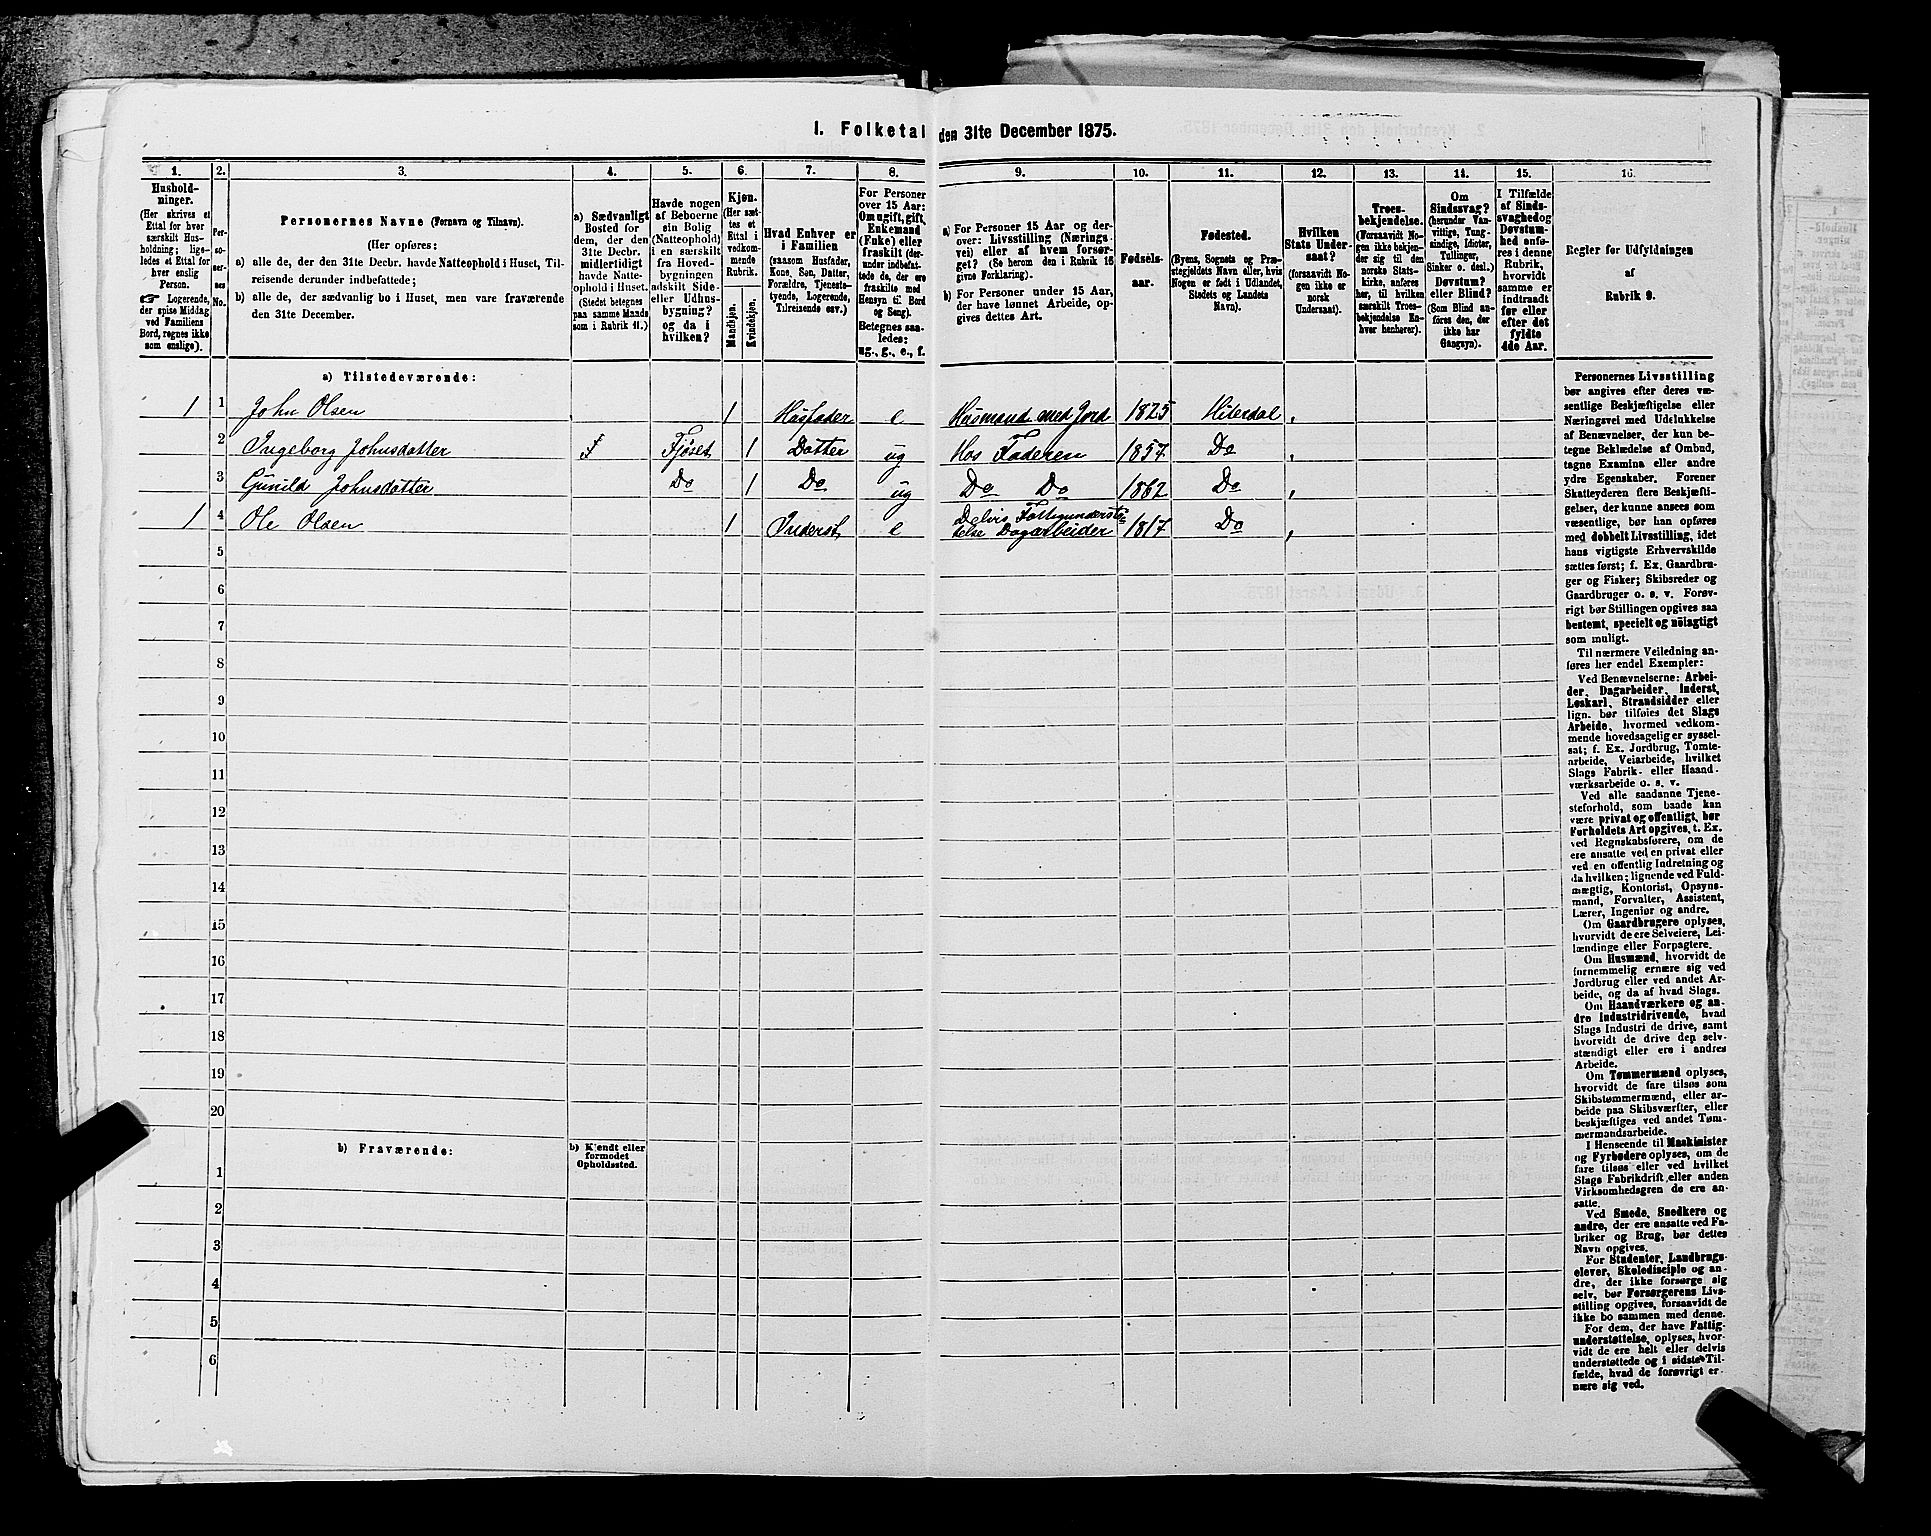 I. Folketal den 31te December 1875.
1.
Hushold-
ninger.
(Her skrives et
Ettal for hver
særskilt Hus-
holdning; lige-
ledes et Ettal for
hver enslig
Person.
Logerende,
der spise Middag
ved Familiens
Bord, regnes ikke
som enslige).
2.
Per-
so-
ner-
nes
No.
3.
Personernes Navne (Fornavn og Tilnavn).
(Her opføres:
a) alle de, der den 31te Decbr. havde Natteophold i Huset, Til-
reisende derunder indbefattede;
b) alle de, der sædvanlig bo i Huset, men vare fraværende
den 31te December.
4.
a) Sædvanligt
Bosted for
dem, der den
31te Decbr.
midlertidigt
havde Natte-
ophold i Huset.
(Stedet betegnes
paa samme Maade
som i Rubrik 11.)
5.
Havde nogen
af Beboerne
sin Bolig
(Natteophold)
i en særskilt
fra Hoved-
bygningen
adskilt Side-
eller Udhus-
bygning?
og da i
hvilken?
6.
Kjøn.
(Her sæt-
tes et
Ettal i
vedkom-
mende
Rubrik.
Mandkjøn.
Kvindekjøn.
7.
Hvad Enhver er
i Familien
(saasom Husfader,
Kone, Søn, Datter,
Forældre, Tjeneste-
tyende, Logerende,
Tilreisende osv.)
8.
For Personer
over 15 Aar:
Om ugift, gift,
Enkemand
(Enke) eller
fraskilt (der-
under indbefat-
tede de, der ere
fraskilte med
Hensyn til Bord
og Seng).
Betegnes saa-
ledes:
ug., g., e., f.
9.
a) For Personer 15 Aar og der-
over: Livsstilling (Nærings-
vei) eller af hvem forsør-
get? (Se herom den i Rubrik 16
givne Forklaring).
b) For Personer under 15 Aar,
der have lønnet Arbeide, op-
gives dettes Art.
10.
Fødsels-
aar.
11.
Fødested.
(Byens, Sognets og Præ-
stegjeldets Navn eller, hvis
Nogen er født i Udlandet,
Stedets og Landets
Navn).
12.
Hvilken
Stats Under-
saat?
(forsaavidt No-
gen ikke er
norsk
Undersaat).
13.
Troes-
bekjendelse.
(Forsaavidt No-
gen ikke bekjen-
der sig til den
norske Stats-
kirke, anføres
her, til hvilken
særskilt Troes-
bekjendelse En-
hver henhører).
14.
Om
Sindssvag?
(herunder Van-
vittige, Tung-
sindige, Idioter,
Tullinger,
Sinker o. desl.)
Døvstum?
eller Blind?
(Som Blind an-
føres den, der
ikke har
Gangsyn).
15.
I Tilfælde
af Sinds-
svaghed og
Døvstum-
hed anfø-
res i denne
Rubrik,
hvorvidt
samme er
indtraadt
før eller
efter det
fyldte
4de Aar.
16.
Regler for Udfyldningen
af
Rubrik 9.
a) Tilstedeværende:
1 1 John Olsen 1 Husfader e Husmand med Jord 1825 Hiterdal
2 Ingeborg Johnsdatter f Fjøset 1 Datter ug Hos Faderen 1857 Do
3 Gunild Johnsdatter Do 1 Do ug Do Do 1862 Do
1 4 Ole Olsen 1 Inderst e Delvis Fattigunderstö-
telse Dagarbeider 1817 Do
5
6
7
8
9
10
11
12
13
14
15
16
17
18
19
20
b) Fraværende:
b) Kjendt eller
formodet
Opholdssted.
1
2
3
4
5
6
Personernes Livsstilling
bør angives efter deres væ-
sentlige Beskjæftigelse eller
Næringsvei med Udelukkelse
af Benævnelser, der kun be-
tegne Beklædelse af Ombud,
tagne Examina eller andre
ydre Egenskaber. Forener
Skatteyderen flere Beskjæfti-
gelser, der kunne ansees som
væsentlige, bør han opføres
med dobbelt Livsstilling, idet
hans vigtigste Erhvervskilde
sættes først; f. Ex. Gaardbru-
ger og Fisker; Skibsreder og
Gaardbruger o. s. v. Forøv-
rigt bør Stillingen opgives saa
bestemt, specielt og nöiagtigt
som muligt.
Til nærmere Veiledning an-
føres her endel Exempler:
Ved Benævnelserne: Arbei-
der, Dagarbeider, Inderst,
Løskarl, Strandsidder eller
lign. bør tilføies det Slags
Arbeide, hvormed vedkom-
mende hovedsagelig er syssel-
sat; f. Ex. Jordbrug, Tomte-
arbeide, Veiarbeide, hvilket
Slags Fabrik- eller Haand-
værksarbeide o. s. v.
Ved alle saadanne Tjene-
steforhold, som baade kan
være privat og offentligt, bør
Forholdets Art opgives, t. Ex.
ved Regnskabsførere, om de
ere ansatte ved en privat eller
ved en offentlig Indretning og
da hvilken; lignende ved Fuld-
mægtig, Kontorist, Opsyns-
mand, Forvalter, Assistent,
Lærer, Ingeniør og andre.
Om Gaardbrugere oplyses,
hvorvidt de ere Selveiere, Lei-
lændinge eller Forpagtere.
Om Husmænd, hvorvidt de
fornemmelig ernære sig ved
Jordbrug eller ved andet Ar-
beide, og da af hvad Slags.
Om Haandværkere og an-
dre Industridrivende, hvad
Slags Industri de drive, samt
hvorvidt de drive den selv-
stændigt eller ere i andres
Arbeide.
Om Tømmermænd oplyses,
hvorvidt de fare tilsøs som
Skibstømmermænd, eller ar-
beide paa Skibsværfter, eller
beskjæftiges ved andet Tøm-
mermandsarbeide.
I Henseende til Maskinister
og Fyrbødere oplyses, om de
fare tilsøs eller ved hvilket
Slags Fabrikdrift eller anden
Virksomhedsgren de ere an-
satte.
Ved Smede, Snedkere og
andre, der ere ansatte ved Fa-
briker og Brug, bør dettes
Navn opgives.
For Studenter, Landbrugs-
elever, Skoledisciple og an-
dre, der ikke forsørge sig
selv, bør Forsørgerens Livs-
stilling opgives, forsaavidt de
ikke bo sammen med denne.
For dem, der have Fattig-
understøttelse, oplyses, hvor-
vidt de ere helt eller delvis
understøttede og i sidste Til-
fælde, hvad de forøvrigt er-
nære sig ved.